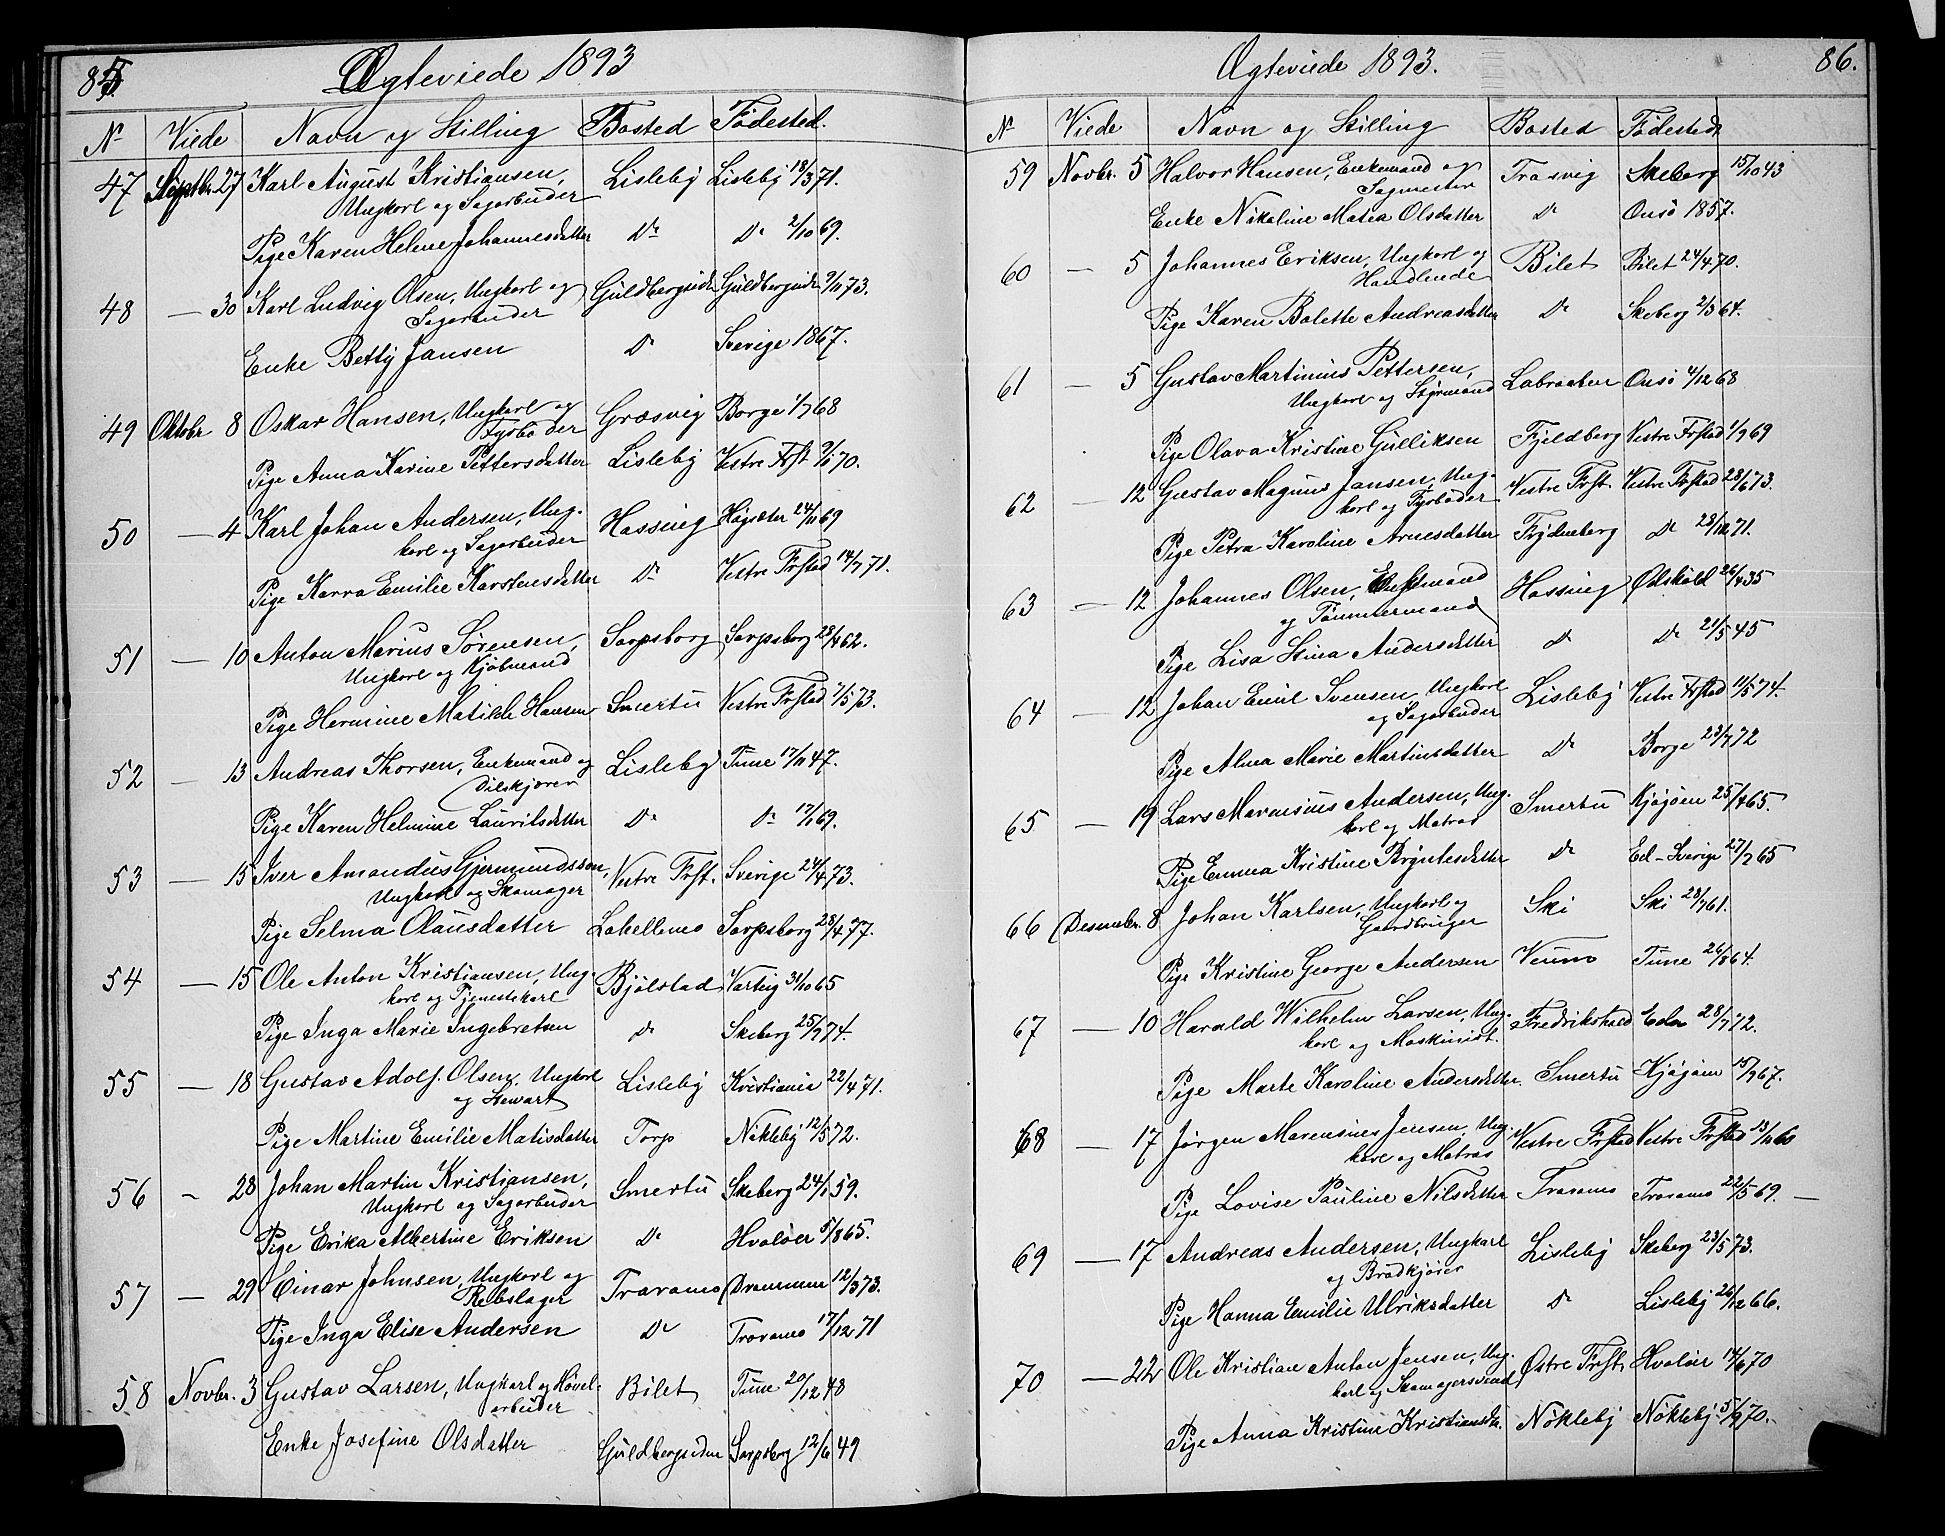 85.
Ægteviede 1893
Nr Viede Navn og Stilling Bosted Fødested.
47 Septbr. 27 Karl August Kristiansen, Lisleby Lisleby 18/3 71.
Ungkarl og Sagarbeider
Pige Karen Helene Johannesdatter Do Do 2/10 69.
48 — 30 Karl Ludvig Olsen, Ungkarl og Guldbergsiden Guldbergsiden 9/11 73.
Sagarbeider
Enke Betty Jansen Do Sverige 1867.
49 Oktobr 8 Oskar Hansen, Ungkarl og Græsvig Borge 1/7 68
Fyrbøder
Pige Anna Karine Pettersdatter Lisleby Vestre Frst 9/1 70.
50 — 4 Karl Johan Andersen, Ung- Hassing Høgsæter 24/11 69
karl og Sagarbeider
Pige Karra Emilie Karstensdatter Do Vestre Frstad 14/7 71.
51 — 10 Anton Marius Sørensen, Sarpsborg Sarpsborg 28/4 62.
Ungkarl og Kjøbmand
Pige Hermine Matilde Hansen Smertu Vestre Frstad 7/5 73.
52 — 13 Andreas Thorsen, Enkemand og Lisleby Tune 17/11 47.
Ølskjører
Pige Karen Helmine Lauritsdatter Do Do 17/1 69.
53 — 15 Iver Amandus Gjermundssen, Vestre Frst. Sverige 24/4 73.
Ungkarl og Skomager
Pige Selma Olausdatter Lahellemo Sarpsborg 28/4 77.
54 — 15 Ole Anton Kristiansen, Ung- Bjølstad Varteig 31/10 65
karl og Tjenestekarl
Pige Inga Marie Ingebretsen Do Skeberg 25/9 74.
55 — 18 Gustav Adolf Olsen, Ungkarl Lisleby Kristiania 22/4 71.
og Stewart
Pige Martine Emilie Matisdatter Torp Nøkleby 12/5 72.
56 - 28 Johan Martin Kristiansen, Smertu Skeberg 24/1 59.
Ungkarl og Sagarbeider
Pige Erika Albertine Eriksen Do Hvaløer 5/8 65.
57 — 29 Einar Johnsen, Ungkarl og Traramo Drammen 12/3 73.
Rebslager
Pige Inga Elise Andersen Do Traramo 17/12 71
58 Novbr. 3 Gustav Larsen, Ungkarl og Høvel- Bilet Tune 20/12 48
arbeider
Enke Josefine Olsdatter Guldbergsiden Sarpsborg 12/6 49
86.
Ægteviede 1893.
Nr Viede Navn og Stilling Bosted Fødested
59 Novbr. 5 Halvor Hansen, Enkemand og Trosvig Skeberg 15/10 43
Sagmester
Enke Nikoline Matea Olsdatter Do Onsø 1857.
60 — 5 Johannes Eriksen, Ungkarl og Bilet Bilet 24/4 70.
Handlende
Pige Karen Bolette Andreasdatter Do Skeberg 2/3 64.
61 — 5 Gustav Martinius Pettersen, Labraaten Onsø 4/12 68
Ungkarl og Styrmand
Pige Olava Kristine Gulliksen Fjeldberg Vestre Frstad 1/9 69
62 — 12 Gustav Magnus Jansen, Ung- Vestre Frst. Vestre Frstad 28/6 73.
karl og Fyrbøder
Pige Petra Karoline Arnesdatter Frydenberg Do 28/12 71.
63 — 12 Johannes Olsen, Enkemand Hassing Ødskold 26/4 35
og Tømmermand
Pige Lisa Stina Andersdatter Do Do 21/5 45
64 — 12 Johan Emil Svensen, Ungkarl Lisleby Vestre Frstad 11/5 74.
og Sagarbeider
Pige Alma Marie Martinsdatter Do Borge 23/7 72
65 — 19 Lars Marensius Andersen, Ung- Smertu Kjøjøen 25/4 65.
karl og Matros
Pige Emma Kristine Bryntesdatter Do Ed-Sverige 27/7 65
66 Desembr. 8 Johan Karlsen, Ungkarl og Ski Ski 28/7 61.
Gaardbruger
Pige Kristine George Andersen Veum Tune 26/8 64.
67 — 10 Harald Wilhelm Larsen, Ung- Fredrikshald Eda 28/7 72.
karl og Maskinist.
Pige Marte Karoline Andersdatter. Smertu Kjøjøen 15/9 67.
68 — 17 Jørgen Marensius Jensen, Ung- Vestre Frstad Vestre Frstad 13/11 60
karl og Matros
Pige Lovise Pauline Nilsdatter Traramo Traramo 22/5 69. —
69 — 17 Andreas Andersen, Ungkarl Lisleby Skeberg 23/5 73.
og Brødkjører
Pige Hanna Emilie Ulriksdatter Do Lisleby 26/12 66.
70 — 22 Ole Kristian Anton Jensen, Ung- Østre Frst. Hvaløer 14/6 70
karl og Skomagersvend
Pige Anna Kristine Kristiansdtr. Nøkleby Nøkleby 5/9 70.